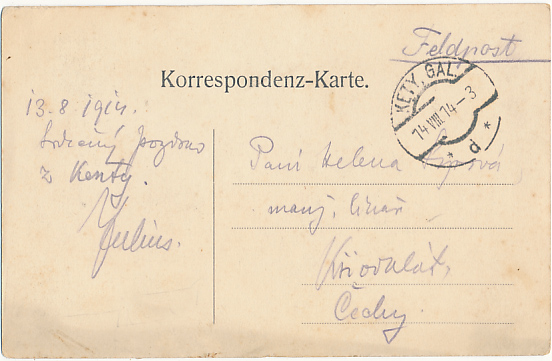 Feldpost
Korrespondenz-Karte.
KETY, GAL.
14 VIII 14-3
* d *
13.8.1914.
Srdečný pozdrav
z Kenty.
Julius.
Paní Helena
manž.
Křivoklát,
Čechy.